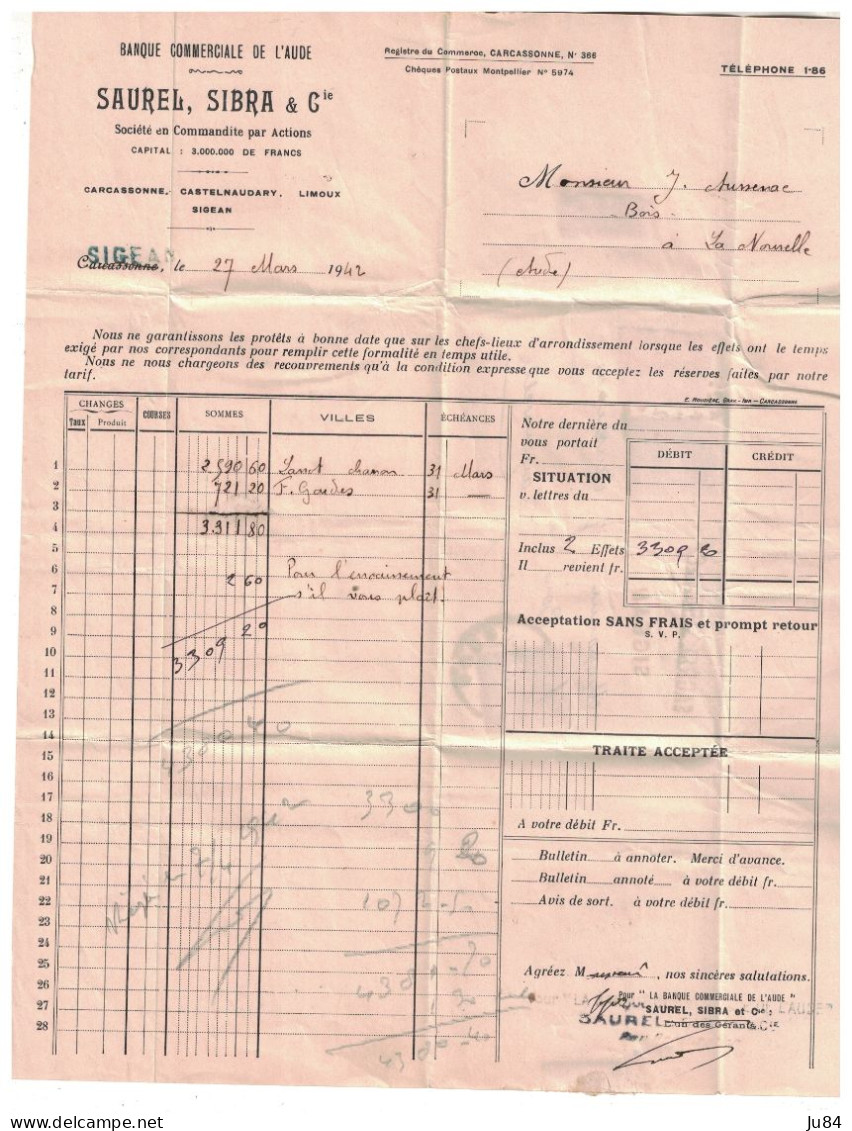 BANQUE COMMERCIALE DE L'AUDE
SAUREL, SIBRA & Cie
Société en Commandite par Actions
CAPITAL : 3.000.000 DE FRANCS
CARCASSONNE. CASTELNAUDARY. LIMOUX
SIGEAN
Registre du Commerce, CARCASSONNE, N° 366
Chèques Postaux Montpellier N° 5974
TÉLÉPHONE 1-86
Monsieur J. Aussenac
Bois
à La Nouvelle
(Aude)
SIGEAN
Carcassonne, le 27 Mars 1942
Nous ne garantissons les protêts à bonne date que sur les chefs-lieux d'arrondissement lorsque les effets ont le temps
exigé par nos correspondants pour remplir cette formalité en temps utile.
Nous ne nous chargeons des recouvrements qu'à la condition expresse que vous acceptez les réserves faites par notre
tarif.
E. ROUDIÈRE, GRAV-IMP - CARCASSONNE
CHANGES COURSES SOMMES VILLES ÉCHÉANCES
Taux Produit
1 2590 60 31 Mars
2 721 20 F. Gardes 31 —
3
4 3311 80
5
6 2 60 Pour l'encaissement
7 s'il vous plait.
8
9
10 3309 20
11
12
13
14
15 4380 40
16
17 3300
18
19
20
21
22
23
24
25
26
27
28
Notre dernière du
vous portait
Fr.
DÉBIT CRÉDIT
SITUATION
v. lettres du
Inclus 2 Effets 3309 20
Il revient fr.
Acceptation SANS FRAIS et prompt retour
S. V. P.
TRAITE ACCEPTÉE
A votre débit Fr.
Bulletin à annoter. Merci d'avance.
Bulletin annoté à votre débit fr.
Avis de sort. à votre débit fr.
Agréez Monsieur, nos sincères salutations.
Pour " LA BANQUE COMMERCIALE DE L'AUDE "
SAUREL, SIBRA et Cie :
L'un des Gérants
SAUREL
Ju84